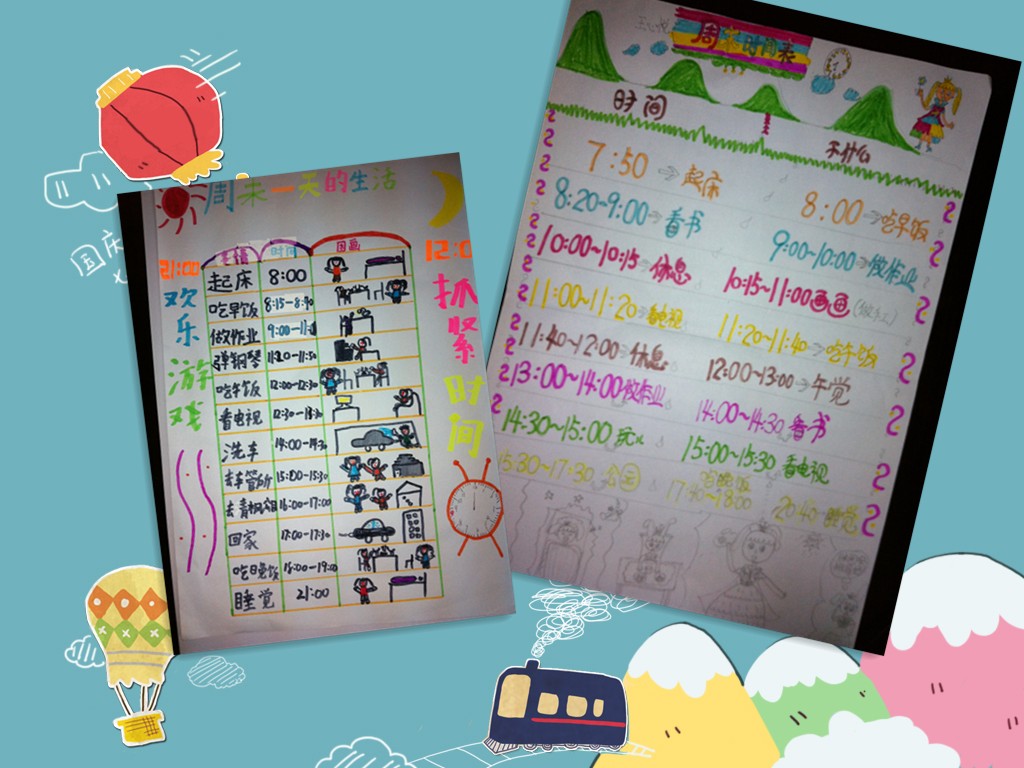 国庆
周末一天的生活
事情 时间 图画
起床 8:00
吃早饭 8:15-8:40
做作业
弹钢琴 11:20-11:50
吃午饭 12:00-12:30
看电视
洗车 14:00-14:30
15:00-15:30
16:00-17:00
回家 17:00-17:30
吃晚饭 18:00-19:00
睡觉 21:00
21:00
欢乐游戏
抓紧时间
周末时间表
时间
干什么
7:50→起床 8:00→吃早饭
8:20~9:00→看书 9:00~10:00→做作业
10:00~10:15→休息 10:15~11:00画画(做手工)
11:00~11:20→看电视 11:20~11:40→吃午饭
11:40~12:00→休息 12:00~13:00→午觉
13:00~14:00做作业 14:00~14:30看书
14:30~15:00玩 15:00~15:30看电视
15:30~17:30 公园 吃晚饭 17:40~18:00 20:40 睡觉